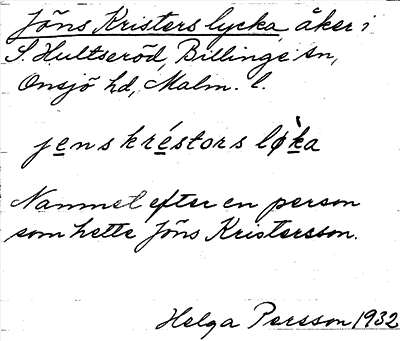 Jöns Kristers lycka, åker i
S. Hultseröd, Billinge sn,
Onsjö hd, Malm. l.
jenskréstors lø̀ka
Namnet efter en person
som hette Jöns Kristersson.
Helga Persson 1932